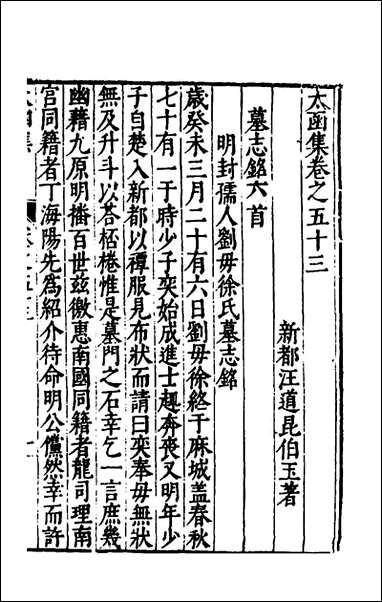 太函集卷之五十三
新都汪道昆伯玉著
墓志銘六首
明封孺人劉母徐氏墓志銘
歲癸未三月二十有六日劉母徐終于麻城蓋春秋
七十有一于時少子奕始成進士趣奔喪又明年少
子自楚入新都以禫服見布狀而請曰奕奉母無狀
無及升斗以荅桮棬惟是墓門之石幸乞一言庶幾
幽藉九原明播百世茲徼惠南國同籍者龍司理南
宮同籍者丁海陽先為紹介待命明公儻然幸而許